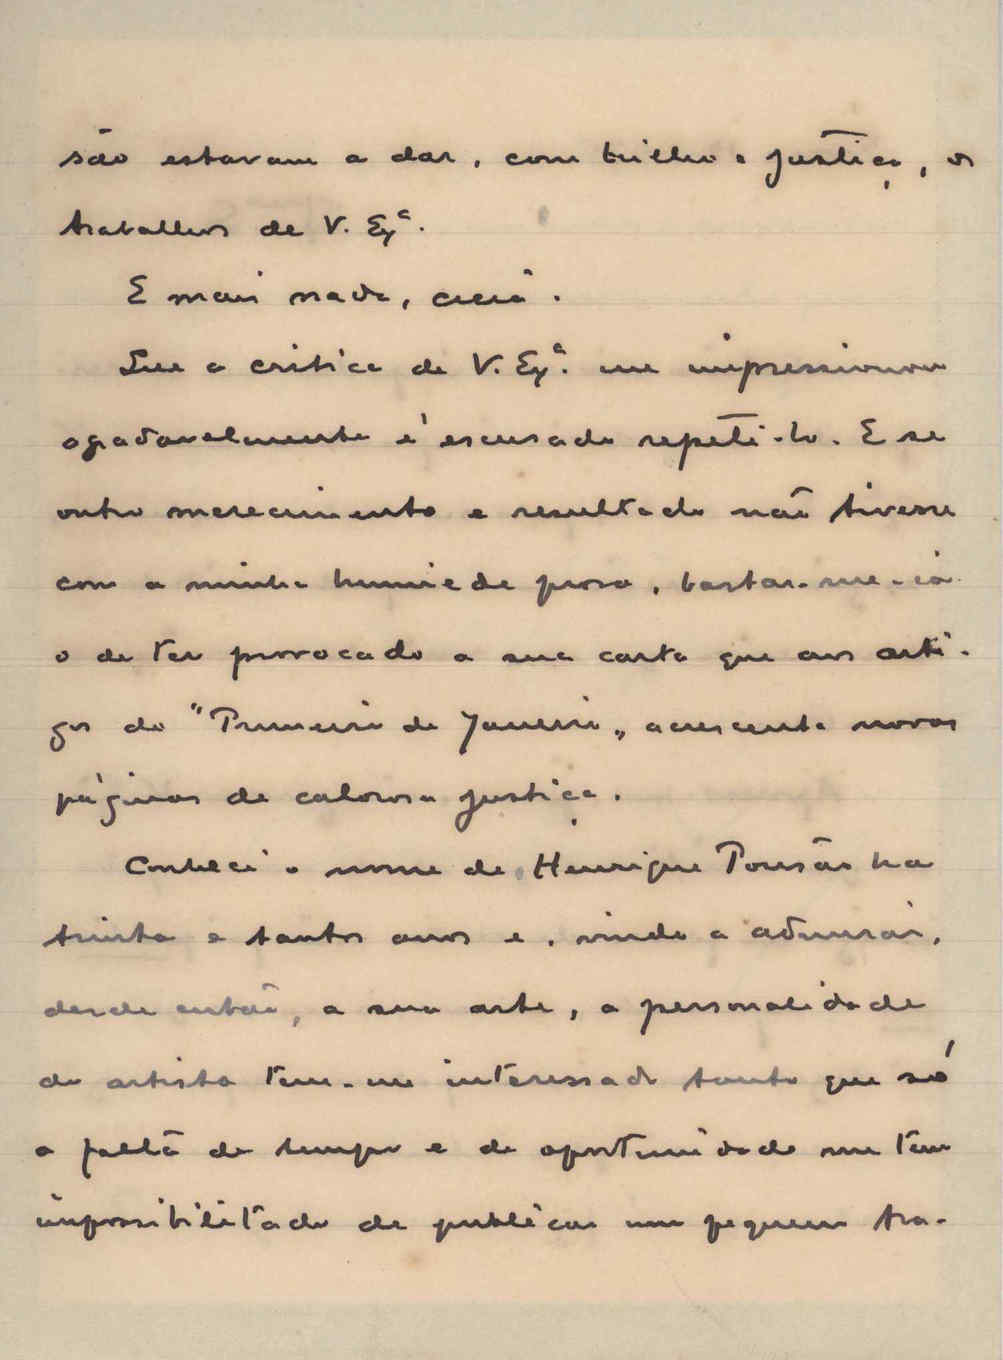 são estavam a dar, com brilho e justiça, os
trabalhos de V. Exª.
E mais nada, creia.
Que a critica de V. Exª. me impressionou
agradavelmente é escusado repeti-lo. E se
outro merecimento e resultado não tivesse
com a minha humilde prosa, bastar-me-ia
o de ter provocado a sua carta que aos arti-
gos do "Primeiro de Janeiro" acrescenta novas
páginas de calorosa justiça.
Conheci o nome de Henrique Pousão ha
trinta e tantos anos e, vindo a admirar,
desde então, a sua arte, a personalidade
do artista tem-me interessado tanto que só
a falta de tempo e de oportunidade me tem
impossibilitado de publicar um pequeno tra-